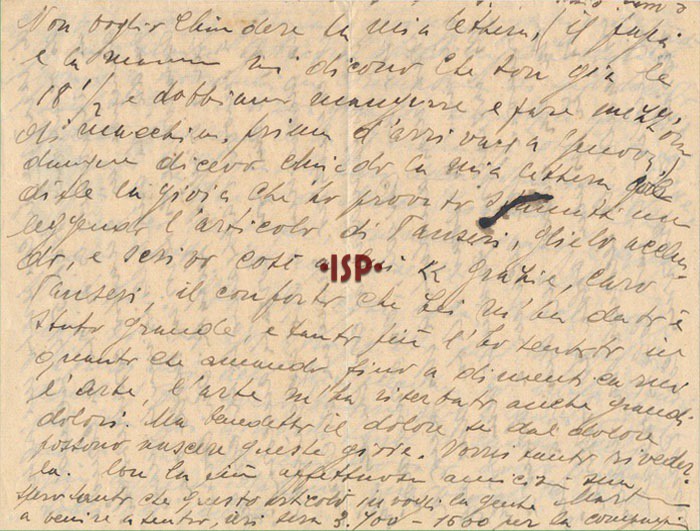 Non voglio chiudere la mia lettera, (il papà
e la mamma mi dicono che son già le
18 1/2 e dobbiamo mangiare e fare mezz'ora
di macchina, prima d'arrivare a Genova)
dunque dicevo chiudo la mia lettera
dirle la gioia che ho provato stamattina
leggendo l'articolo di Panseri, glielo acclu-
do, e scrivo così a lei grazie, caro
Panseri il conforto che Lei m'ha dato è
stato grande, e tanto più l'ho sentito in
quanto che amando fino a dimenticarmi
l'arte, l'arte m'ha riserbato anche grandi
dolori. Ma benedetto il dolore se dal dolore
possono nascere queste gioie. Vorrei tanto riveder-
la. Con la più affettuosa amicizia sua Marta
Spero tanto che questo articolo invogli la gente
a venire a teatro, ieri sera 3.700 - 1600 per la compagni
ISP